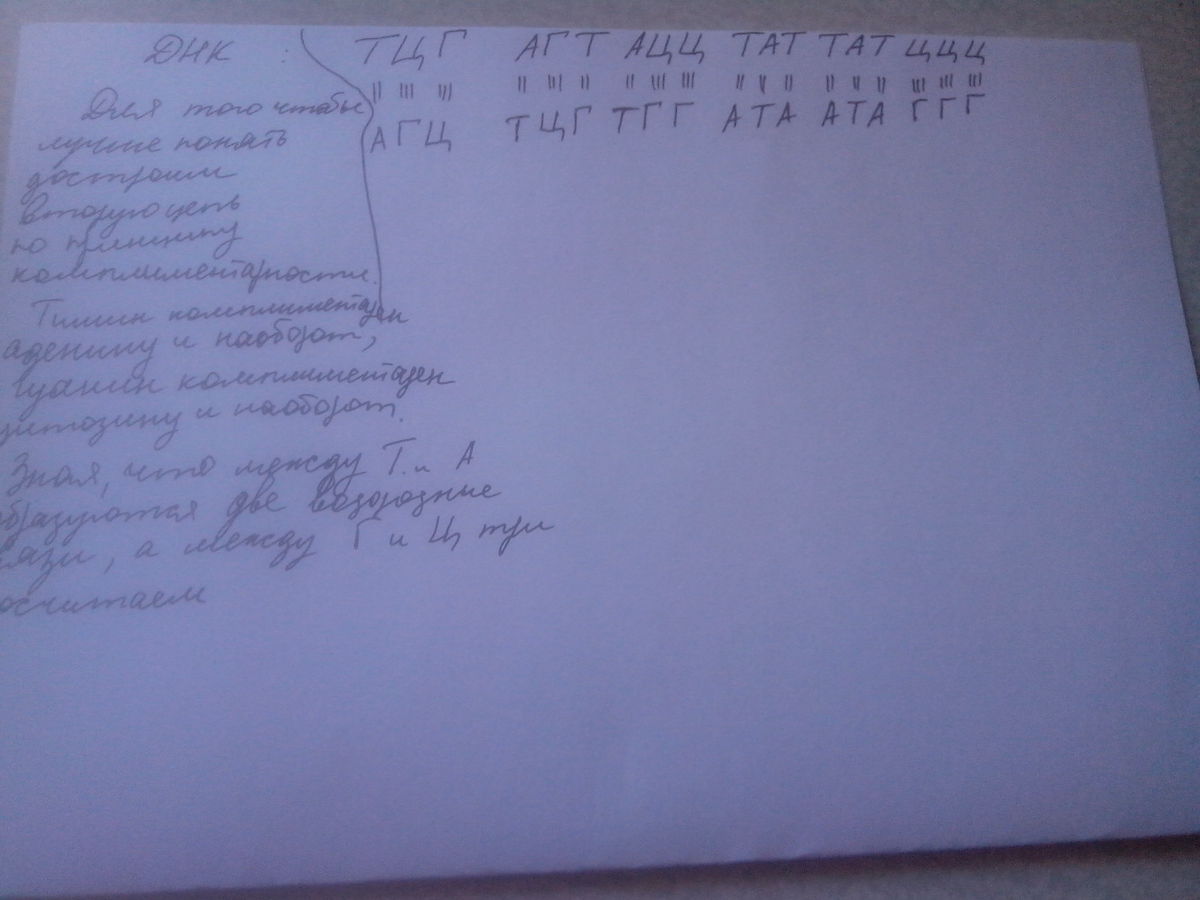 ДНК : ТЦГ АГТ АЦЦ ТАТ ТАТ ЦЦЦ
АГЦ ТЦГ ТГГ АТА АТА ГГГ
Для того чтобы
лучше понять
достроим
вторую цепь
по принципу
комплиментарности.
Тимин комплиментарен
аденину и наоборот,
гуанин комплиментарен
цитозину и наоборот.
Зная, что между Т и А
образуются две водородные
связи, а между Г и Ц три
посчитаем